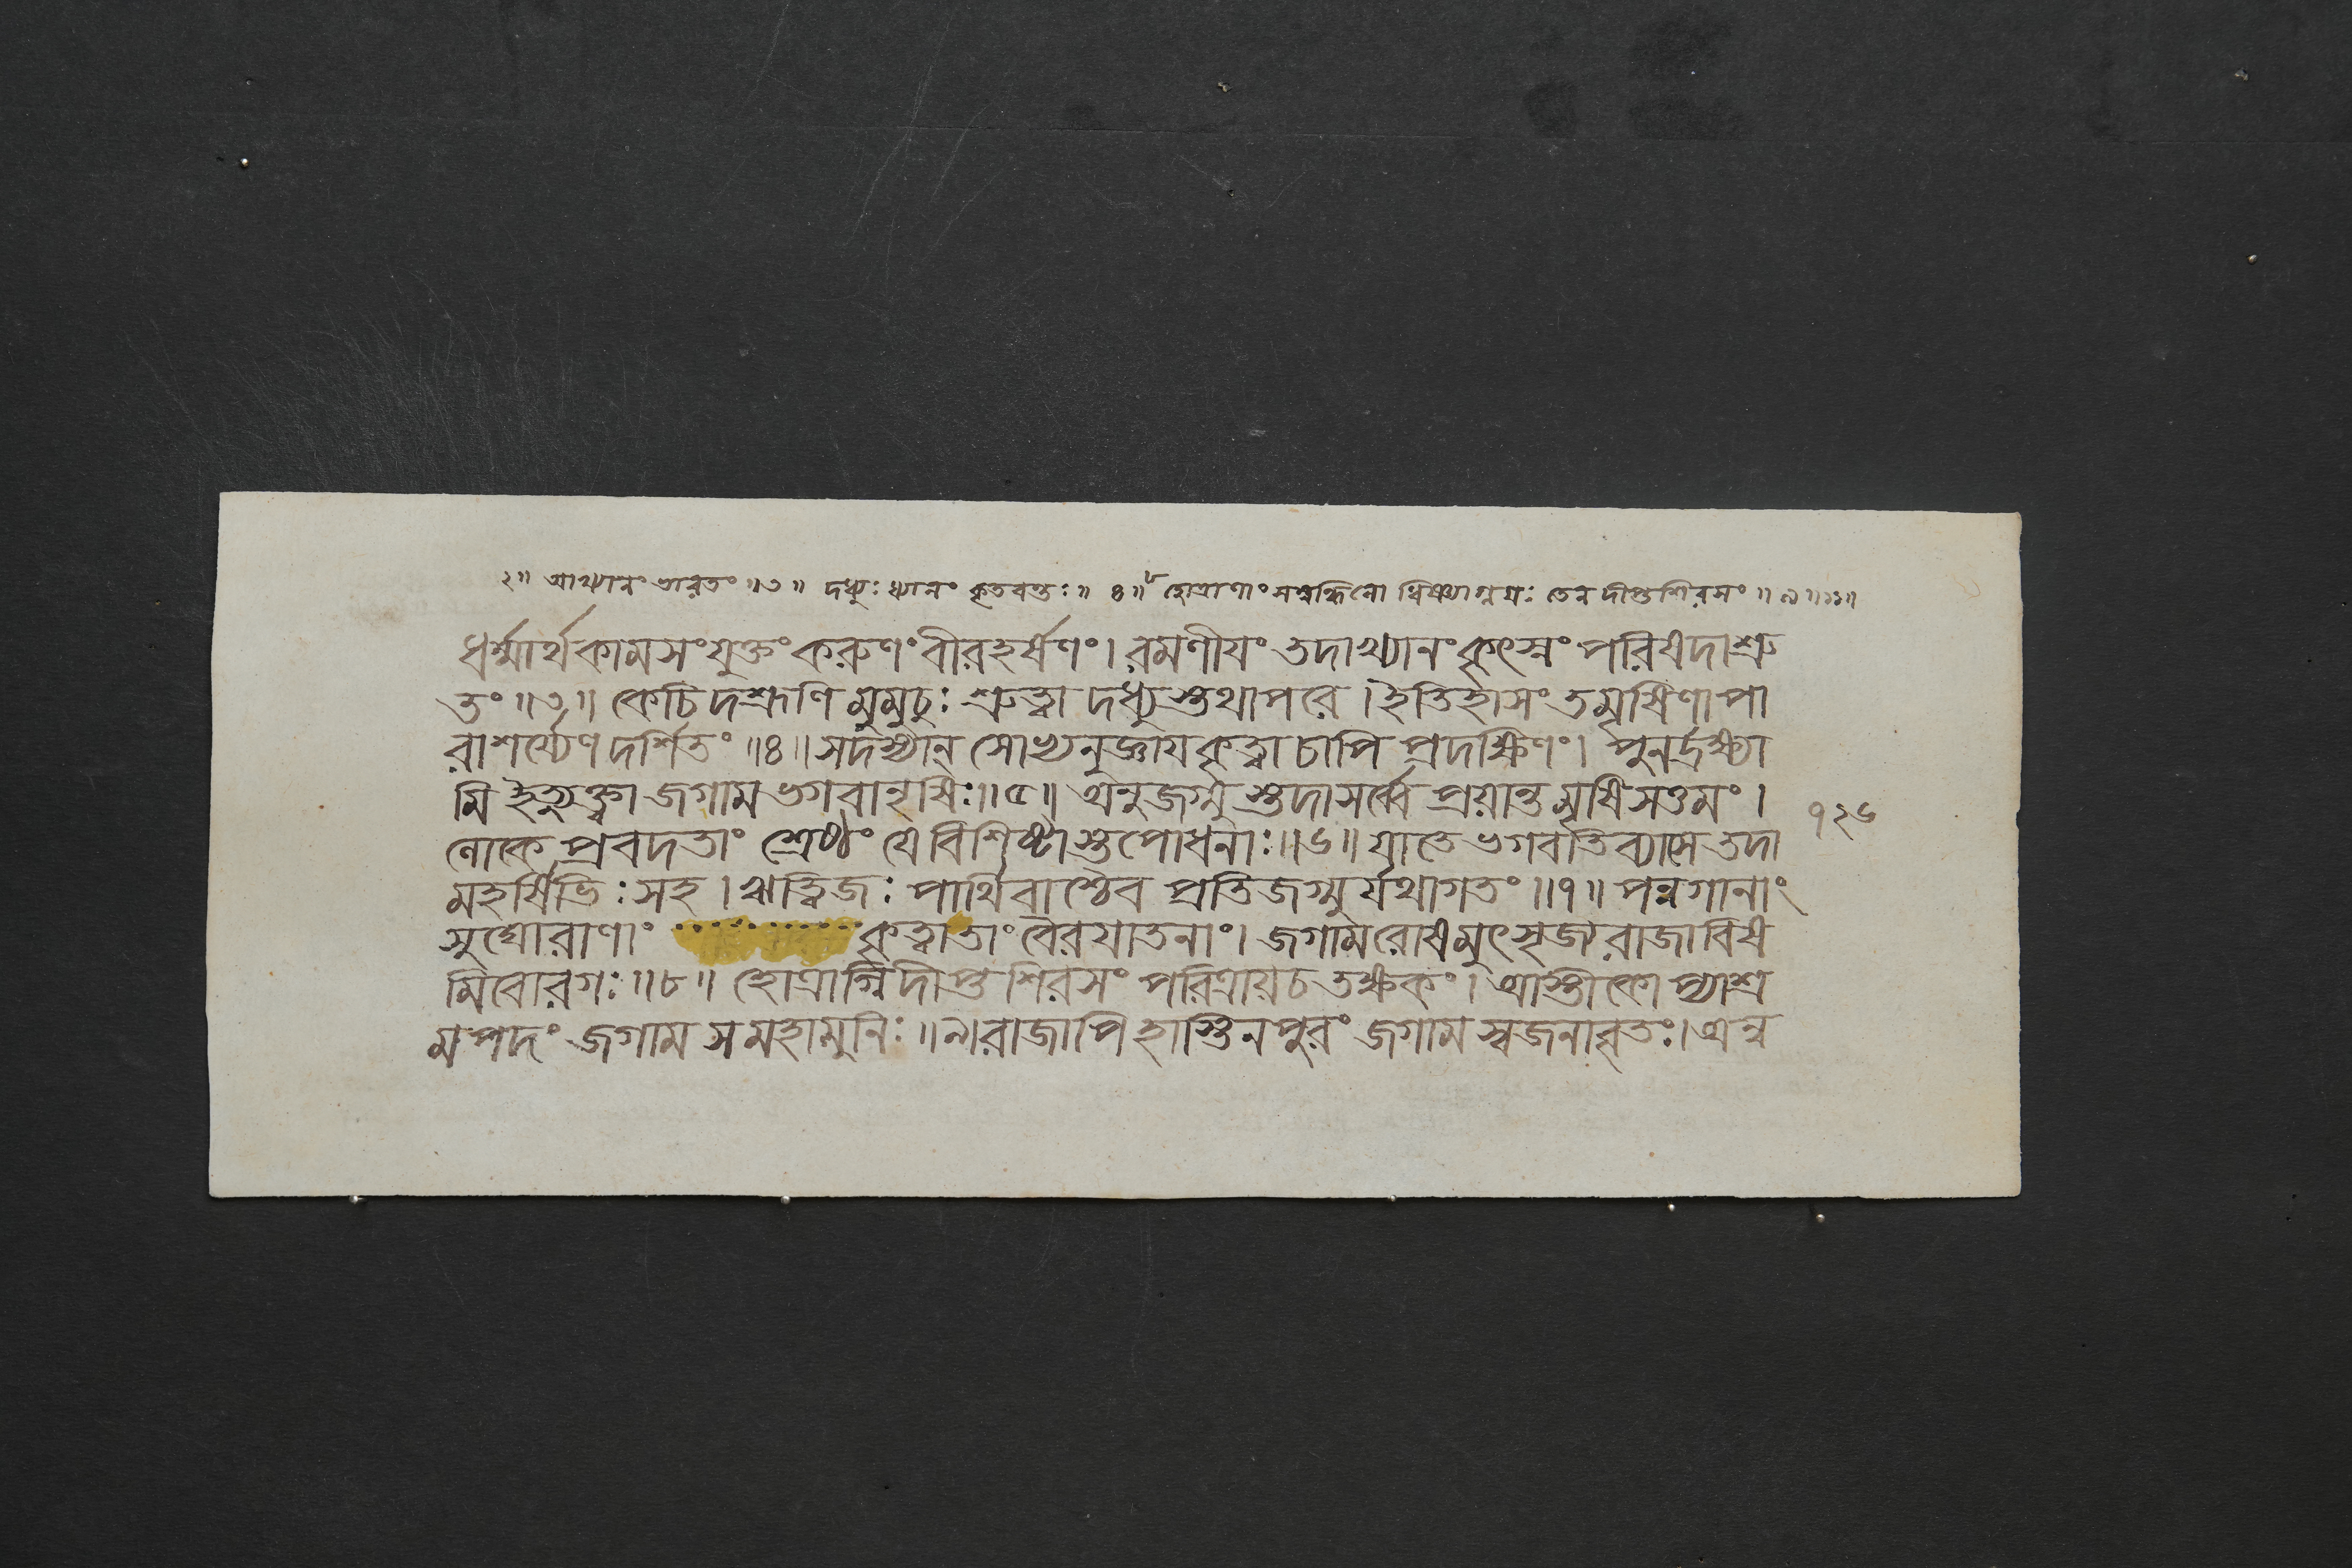 ২॥ আখ্যানং ভারতং ॥৩॥ দধ্যুঃ ধ্যানং কৃতবন্তঃ ॥ ৪॥ হোত্রাণাং সম্বন্ধিনো ধিষ্ণ্যাগ্নয়ঃ তেন দীপ্তশিরসং ॥ ৯॥
ধর্ম্মার্থকামসংযুক্তং করুণং বীরহর্ষণং। রমণীযং তদাখ্যানং কৃৎস্নং পরিষদাশ্রু
তং ॥৩॥ কেচিদশ্রূণি মুমুচুঃ শ্রুত্বা দধ্যুস্তথাপরে। ইতিহাসং তমৃষিণা পা
রাশর্য্যেণ দর্শিতং ॥৪॥ সদস্যান্ সোভ্যনুজ্ঞায কৃত্বা চাপি প্রদক্ষিণং। পুনর্দ্রক্ষ্যা
মি ইত্যুক্ত্বা জগাম ভগবানৃষিঃ॥৫॥ অনুজগ্মুস্তদা সর্ব্বে প্রয়ান্তমৃষিসত্তমং।
লোকে প্রবদতাং শ্রেষ্ঠং যে বিশিষ্টাস্তপোধনাঃ॥৬॥ যাতে ভগবতি ব্যাসে তদা
১২৬
মহর্ষিভিঃ সহ। ঋত্বিজঃ পার্থিবাশ্চৈব প্রতিজগ্মুর্যথাগতং ॥৭॥ পন্নগানাং
সুঘোরাণাং কৃত্বা তাং বৈরযাতনাং। জগাম রোষমুৎসৃজ্য রাজা বিষ
মিবোরগঃ ॥৮॥ হোত্রাগ্নিদীপ্তশিরসং পরিত্রায় চ তক্ষকং। আস্তীকোপ্যাশ্র
মপদং জগাম স মহামুনিঃ ॥৯॥ রাজাপি হাস্তিনপুরং জগাম স্বজনাবৃতঃ। অন্ব